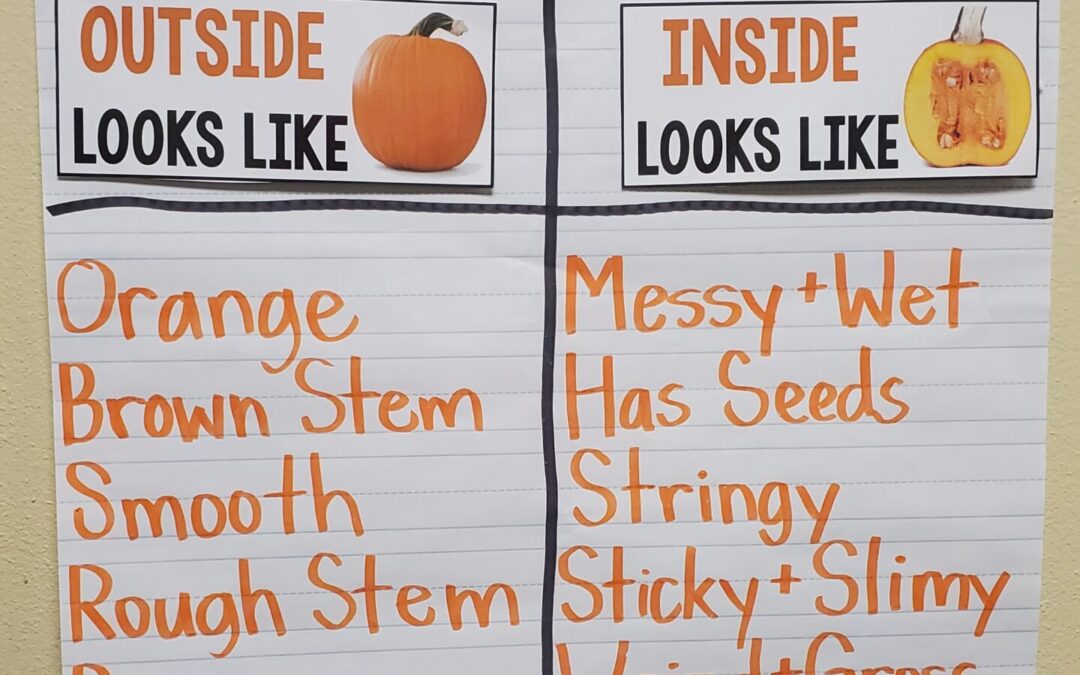 OUTSIDE
LOOKS LIKE
Orange
Brown Stem
Smooth
Rough Stem
INSIDE
LOOKS LIKE
Messy + Wet
Has Seeds
Stringy
Sticky + Slimy
Weird + Gross